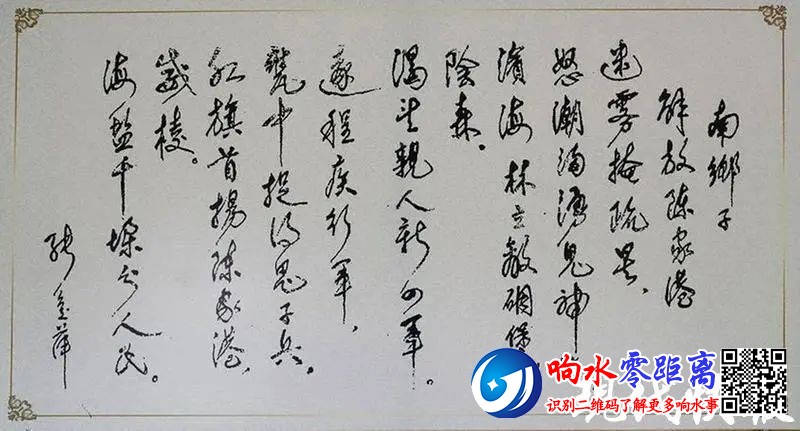 南鄉子
解放陈家港
迷雾掩疏星，
怒潮汹湧鬼神
濱海林立敵碉堡
陰森。
渴望親人新四軍。
遠程疾行軍，
甕中捉得鬼子兵。
红旗首揚陈家港，
威棱。
海盐千垛分人民。
张爱萍
响水零距离
识别二维码了解更多响水事
现代快报